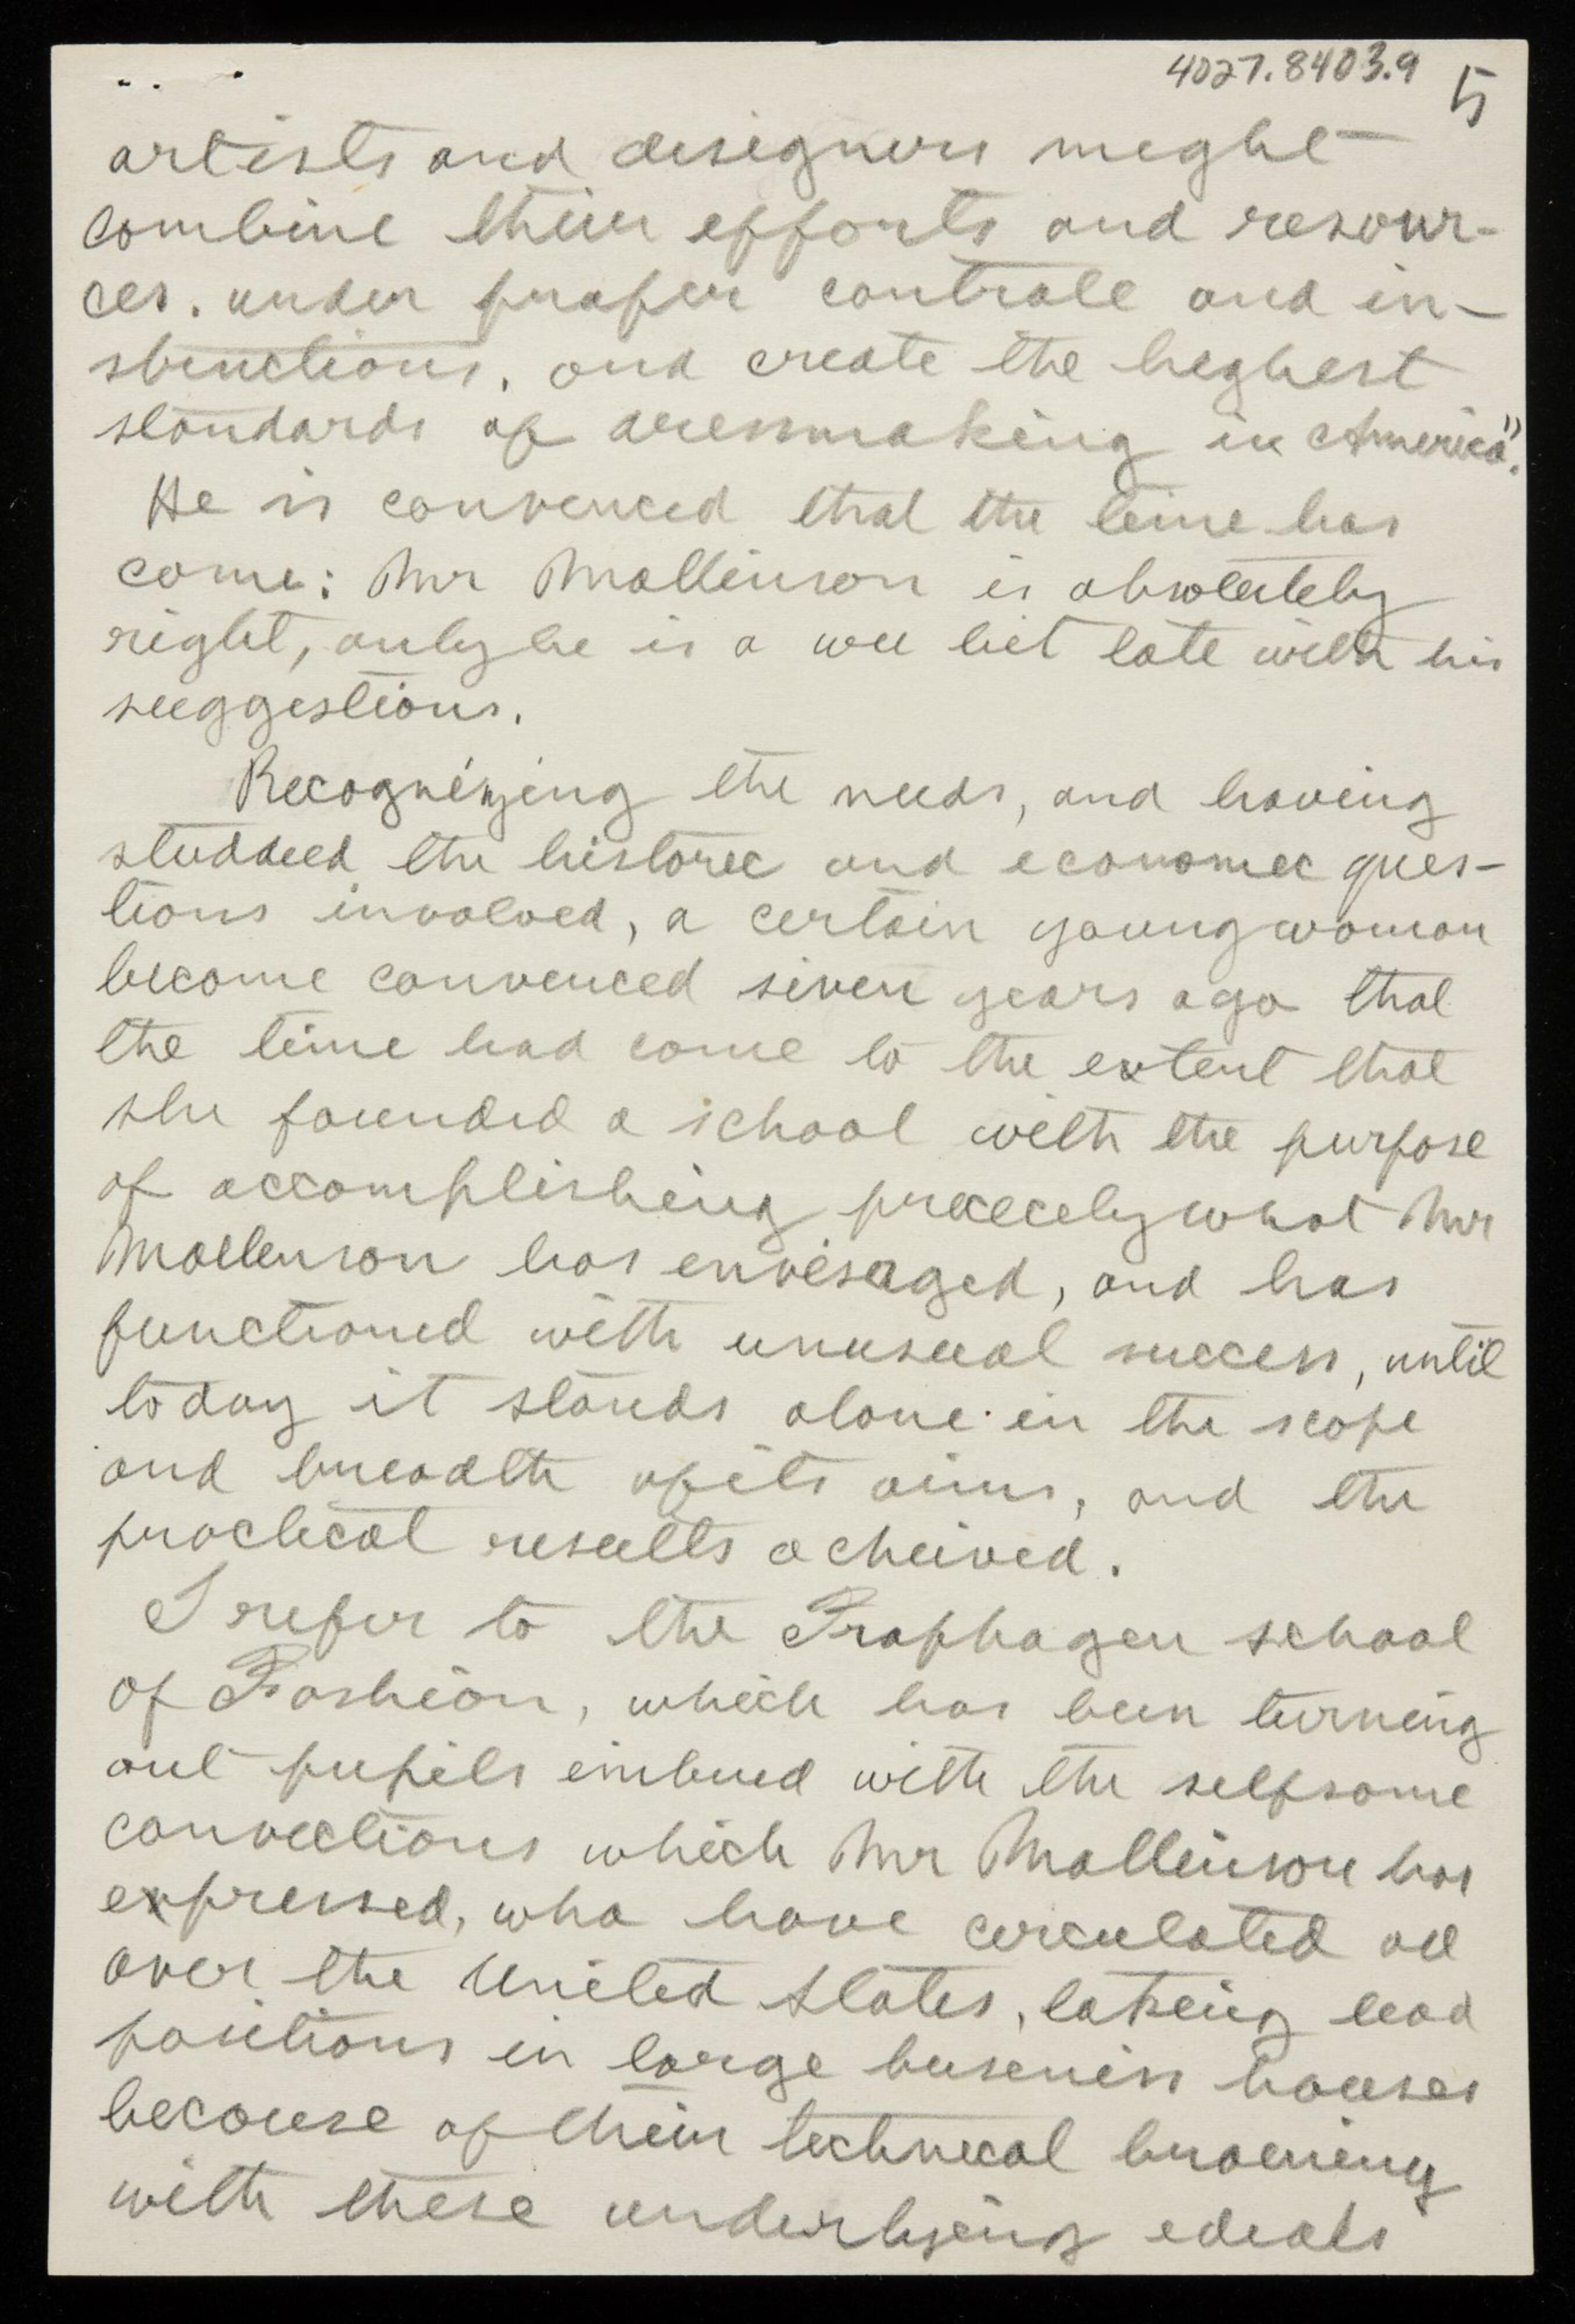 4027.8403.9
5
artists and designers might
combine their efforts and resour-
ces. under proper controle and in-
structions, and create the highest
standards of dressmaking in America".
He is convinced that the time has
come: Mr Mallinson is absolutely
right, only he is a wee bit late with his
suggestions.
Recognizing the needs, and having
studdied the historic and economic ques-
tions involved, a certain young woman
became convinced seven years ago that
the time had come to the extent that
she founded a school with the purpose
of accomplishing precicely what Mr
Mallinson has envisaged, and has
functioned with unusual success, until
today it stands alone in the scope
and breadth of its aims, and the
practical results acheived.
I refer to the Traphagen school
of Fashion, which has been turning
out pupils imbued with the selfsame
convictions which Mr Mallinson has
expressed, who have circulated all
over the United States, taking lead
positions in large business houses
because of their technical training
with these underlying ideals